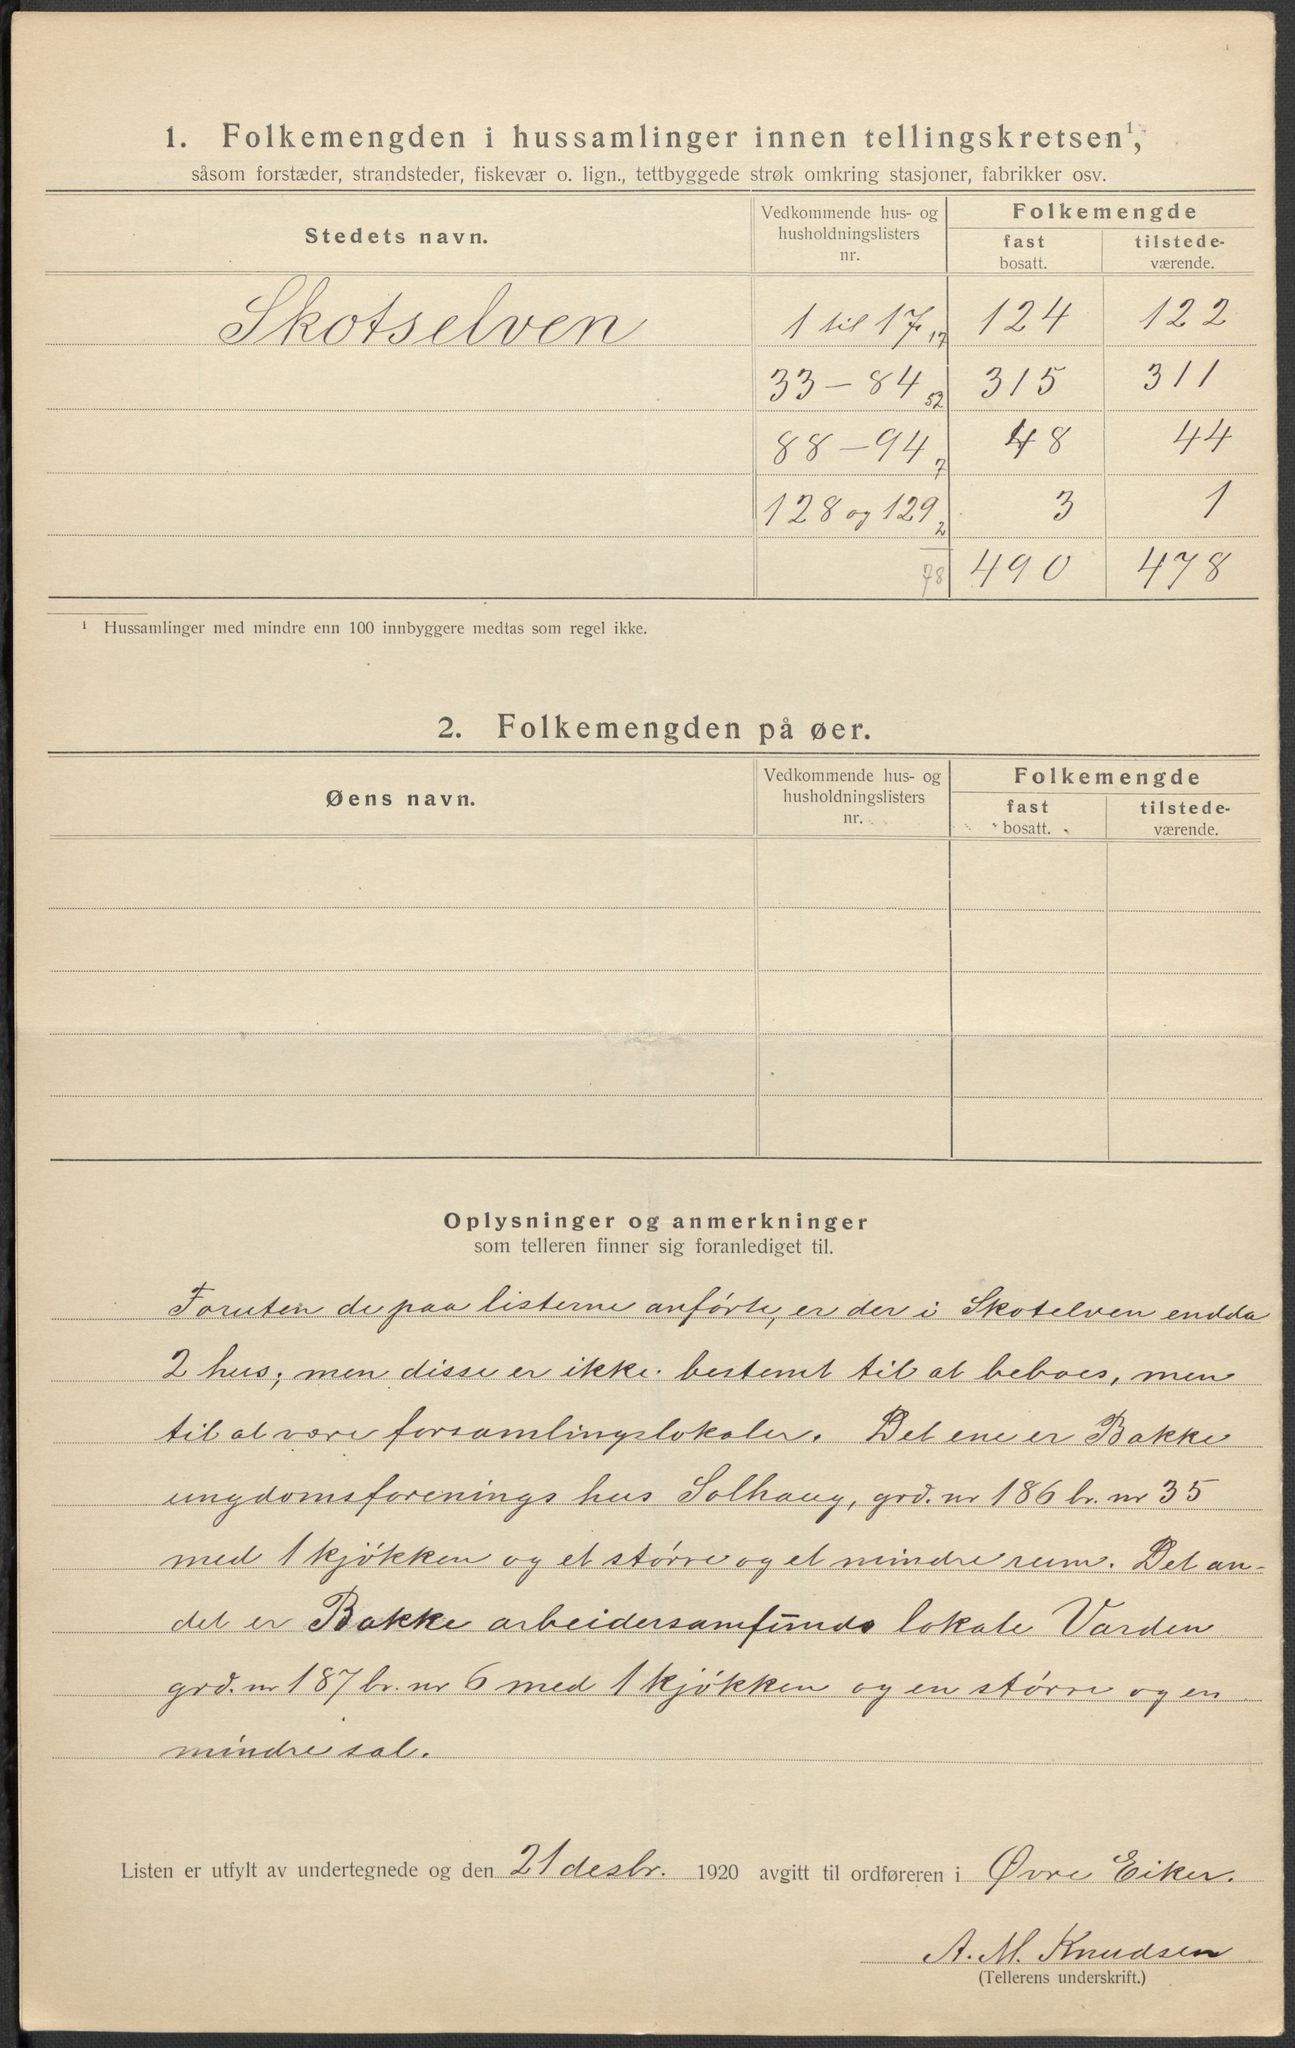 1. Folkemengden i hussamlinger innen tellingskretsen¹,
såsom forstæder, strandsteder, fiskevær o. lign., tettbyggede strøk omkring stasjoner, fabrikker osv.
Stedets navn.
Vedkommende hus- og
husholdningslisters
nr.
Folkemengde
fast
bosatt.
tilstede-
værende.
Skotselven 1 til 17 17 124 122
33 – 84 52 315 311
88 – 94 7 48 44
128 og 129 2 3 1
78 490 478
¹ Hussamlinger med mindre enn 100 innbyggere medtas som regel ikke.
2. Folkemengden på øer.
Øens navn.
Vedkommende hus- og
husholdningslisters
nr.
Folkemengde
fast
bosatt.
tilstede-
værende.
Oplysninger og anmerkninger
som telleren finner sig foranlediget til.
Foruten de paa listerne anførte, er der i Skotelven endda
2 hus; men disse er ikke bestemt til at beboes, men
til at være forsamlingslokaler. Det ene er Bakke
ungdomsforenings hus Solhaug, grd. nr 186 br. nr 35
med 1 kjøkken og et større og et mindre rum. Det an-
det er Bakke arbeidersamfunds lokale Varden
grd. nr 187 br. nr 6 med 1 kjøkken og en større og en
mindre sal.
Listen er utfylt av undertegnede og den 21 desbr. 1920 avgitt til ordføreren i Øvre Eiker.
A. M. Knudsen
(Tellerens underskrift.)